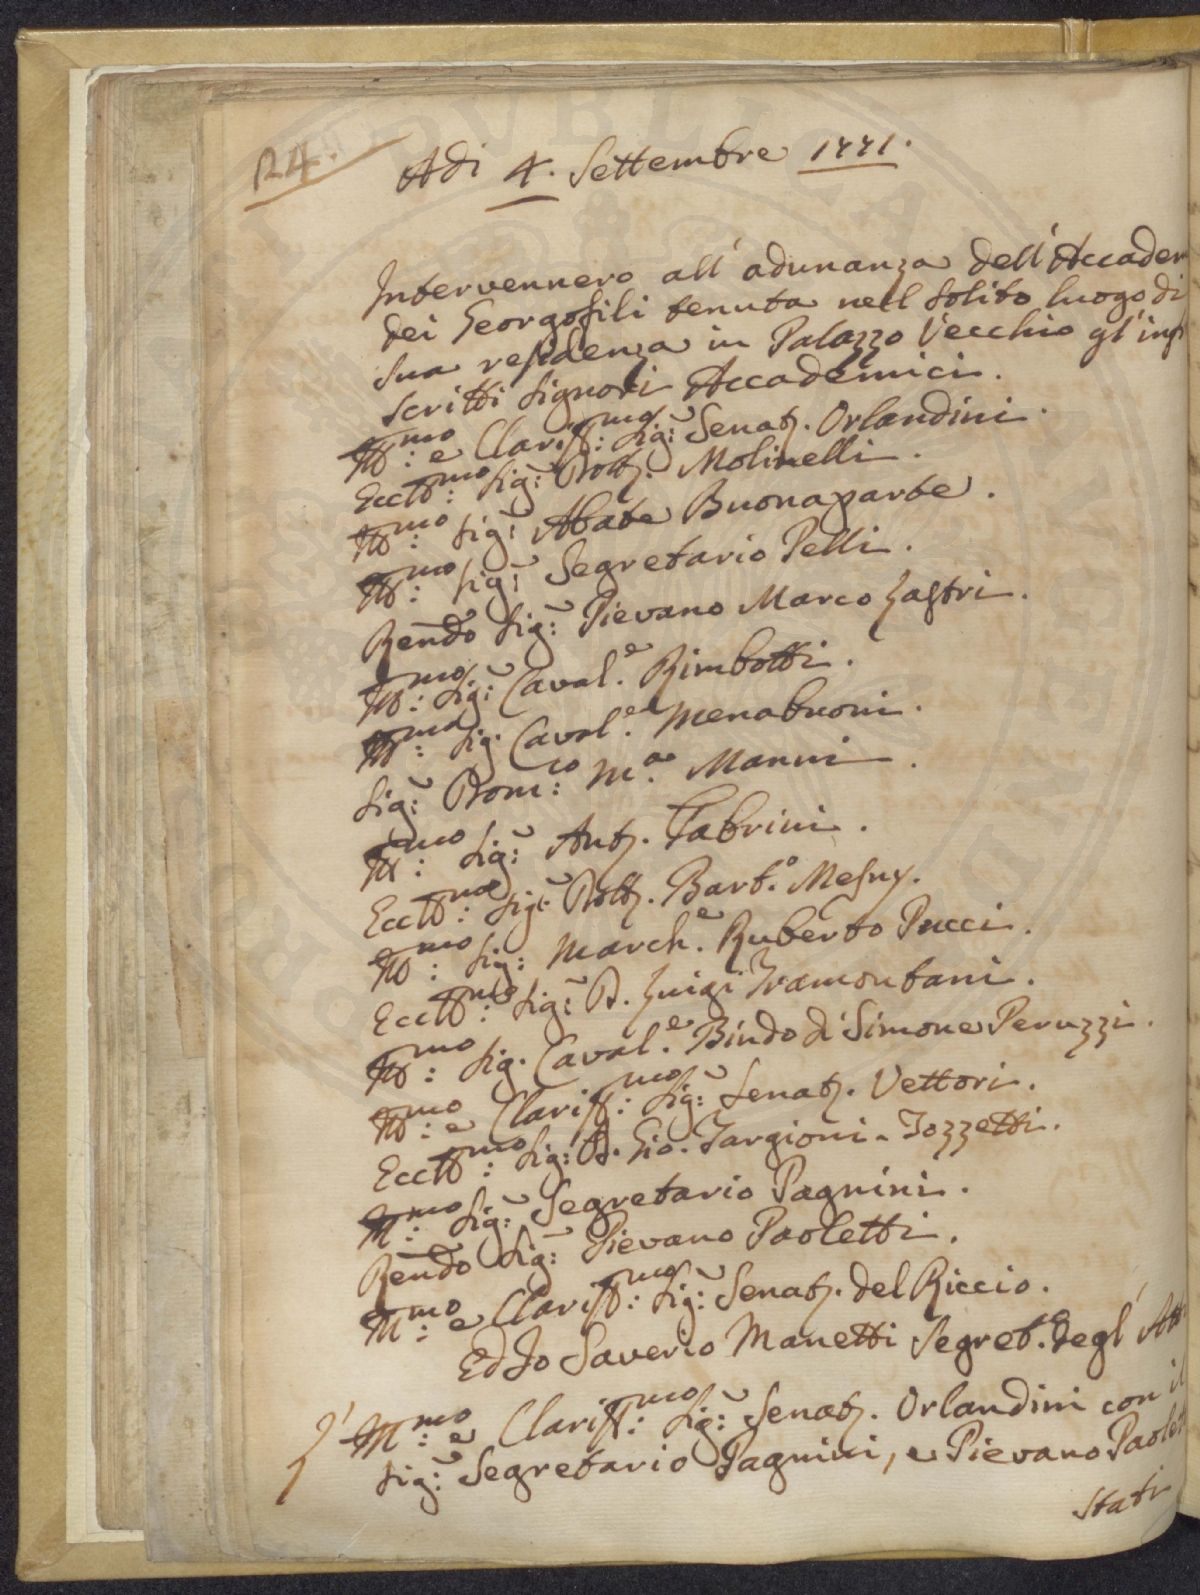 124.
Adi 4. Settembre 1771.
Intervennero all'adunanza dell'Accadem
dei Georgofili tenuta nel solito luogo di
sua residenza in Palazzo Vecchio gl'infr
scritti Signori Accademici.
Ill:mo e Clariss:mo Sig: Senat. Orlandini.
Eccll:mo Sig: Dott. Molinelli.
Ill:mo Sig: Abate Buonaparte.
Ill:mo Sig: Segretario Pelli.
Rendo Sig: Pievano Marco Lastri.
Ill:mo Sig: Caval.e Rimbotti.
Ill:mo Sig. Caval.e Menabuoni.
Sig: Dom:co M.a Manni.
Ill:mo Sig: Ant. Fabrini.
Eccll:mo Sig: Dott. Bart.o Mesny.
Ill:mo Sig: March.e Ruberto Pucci.
Eccll:mo Sig: D. Luigi Tramontani.
Ill:mo Sig. Caval.e Bindo di Simone Peruzzi.
Ill:mo e Clariss:mo Sig: Senat. Vettori.
Eccll:mo Sig: D. Gio. Targioni-Tozzetti.
Ill:mo Sig: Segretario Pagnini.
Rendo Sig: Pievano Paoletti.
Ill:mo e Clariss:mo Sig: Senat. del Riccio.
Ed Io Saverio Manetti Segret. degl'Atti
L'Ill:mo e Clariss:mo Sig: Senat. Orlandini con il
Sig: Segretario Pagnini, e Pievano Paolet
Stati